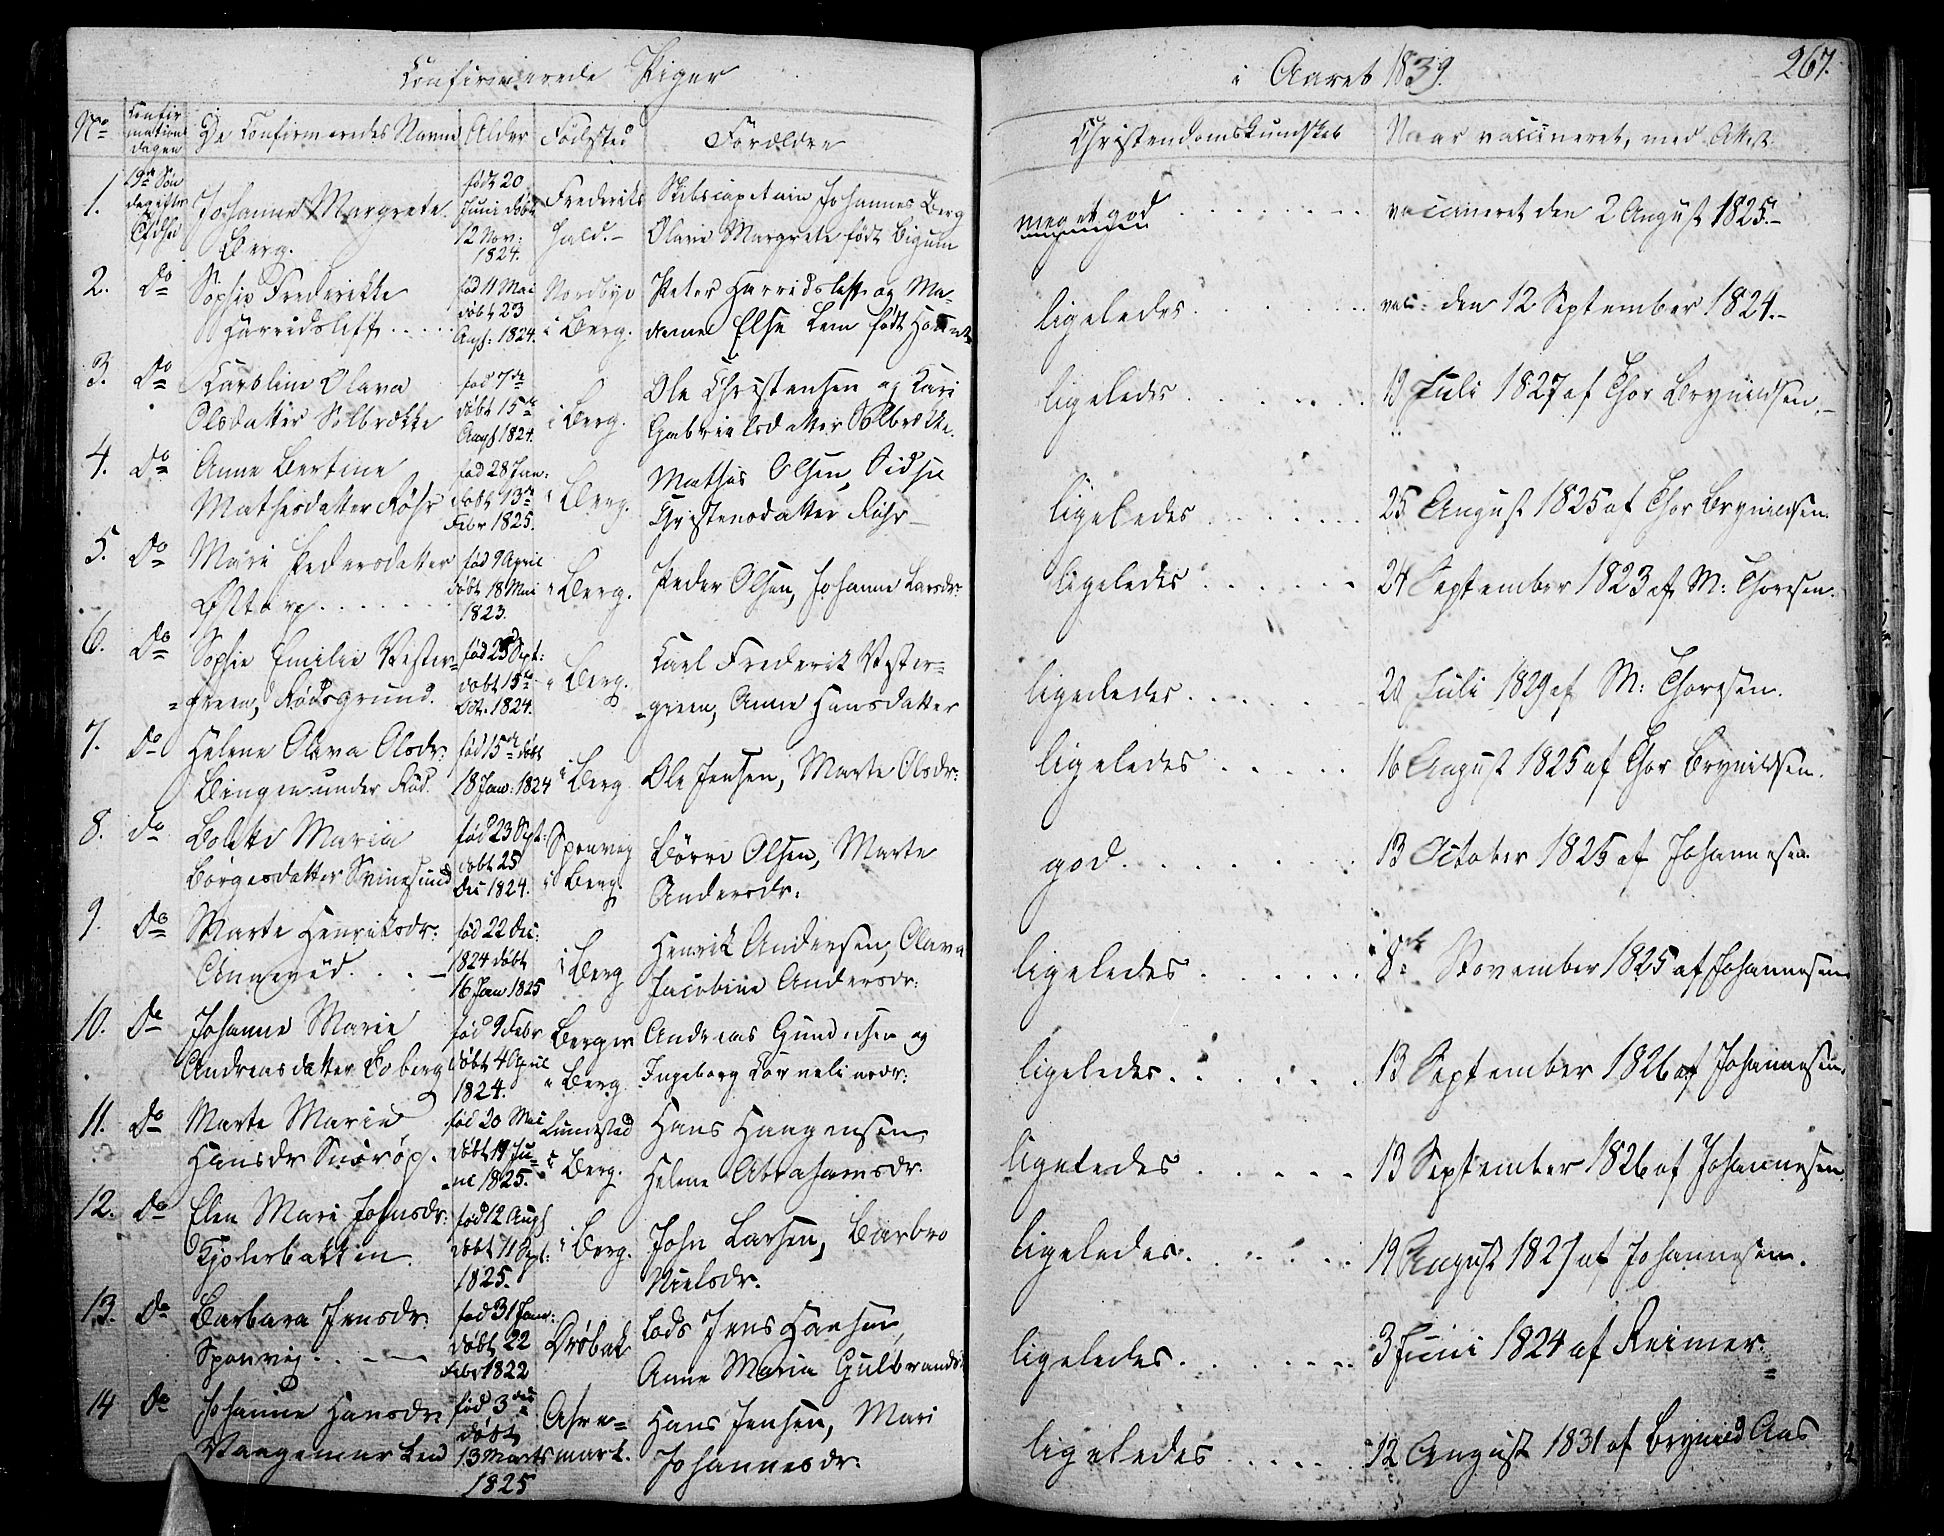 Confirmerede Piger
i Aaret 1839.
267.
No
Confirmations dagen
De Confirmeredes Navne
Alder
Fødested
Forældre
Christendomskundskab
Naar vaccineret, med Attest
1. 19de Søndag efter
Johanne Margrete Berg.
født 20 Juni døbt 12 Nov: 1824.
Frederikshald.-
Skibscapetain Johannes Berg
Olava Margrete født Bigum
meget god
vaccineret den 2 August 1825.-
2. Do
Sophie Frederikke Harridsleff
fød 11 Mai døbt 23 Aug: 1824.
Nordbye i Berg.
Peter Harridsleff og Madame Else Lem født
ligeledes
vac: den 12 September 1824.-
3. Do
Karoline Olava Olsdatter Solbrekke
fød 7de døbt 15de Aug 1824.
i Berg.
Ole Christensen og Kari Gabrielsdatter Solbrekke.
ligeledes
19 Juli 1827 af Thor Brynildsen.-
4. Do
Anne Bertine Mathisdatter Röhr
fød 28 Jan: døbt 13de Febr 1825.
i Berg.
Mathis Olsen, Sidsie Christensdatter Röhr
ligeledes
25 August 1825 af Thor Brynildsen.
5. Do
Mari Pedersdatter Østtorp
fød 9 April døbt 18 Mai 1823.
i Berg.
Peder Olsen, Johanne Larsdr:
ligeledes
24 September 1823 af M: Thoresen.
6. Do
Sophie Emilie Vester=
=green, Rødsgrund.
fød 25 Sept: døbt 15de Oct. 1824.
i Berg.
Carl Frederik Vester=
=green, Anne Hansdatter
ligeledes
20 Juli 1829 af M: Thoresen.
7. Do
Helene Olava Olsdr: Bingen under Rød.
fød 15de døbt 18 Jan: 1824
i Berg
Ole Jensen, Marte Olsdr:
ligeledes
16 August 1825 af Thor Brynildsen.
8. do
Bolette Maria Børgesdatter Svinesund
fød 23 Sept: døbt 25 Dec 1824.
Sponvig i Berg.
Börre Olsen, Marte Andersdr:
god
13 October 1825 af Johannesen.
9. Do
Marte Henriksdr:
fød 22 Dec: 1824 døbt 16 Jan 1825
i Berg
Henrik Andersen, Olava Jacobine Andersdr:
ligeledes
8de November 1825 af Johannesen
10. Do
Johanne Marie Andreasdatter Foberg
fød 9 Febr døbt 4 April 1824.
Berger i Berg.
Andreas Gundersen og Ingeborg Cornelinsdr:
ligeledes
13 September 1826 af Johannesen.
11. Do
Marte Marie Hansdr
fød 20 Mai døbt 19 Ju=
=ni 1825.
Lundestad i Berg.
Hans Haagensen, Helene Abrahamsdr.
ligeledes
13 September 1826 af Johannesen.
12. Do
Elen Mari Johnsdr: Kjølerbakken.
fød 12 Aug døbt 11 Sept: 1825.
i Berg.
John Larsen, Barbro Nielsdr.
ligeledes
19 August 1827 af Johannesen.
13. Do
Barbara Jensdr: Sponvig
fød 31 Jan: døbt 22 Febr 1822
Drøbak
Lods Jens Hansen, Anne Maria Gulbrandsd
ligeledes
3 Juni 1824 af Reimer.
14 Do
Johanne Hansdr
fød 3die døbt 13 Marts 1825
Asre=
mark.
Hans Jensen, Mari Johannesdr:
ligeledes
12 August 1831 af Brynild Aas